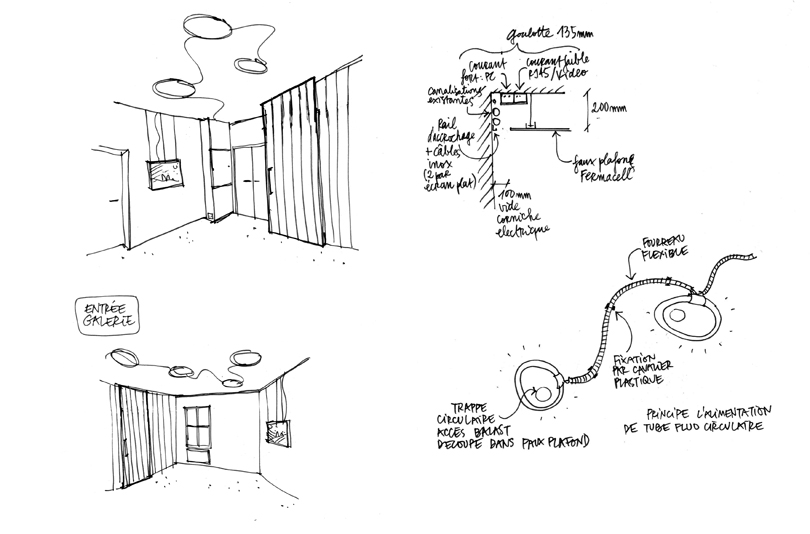 goulotte 135mm
courant
fort: PC
courant faible
RJ45/Vidéo
canalisations
existantes
200mm
Rail
d'accrochage
+ câbles
inox
(2 par
écran plat)
faux plafond
Fermacell
100mm
vide
corniche
electrique
ENTRÉE
GALERIE
FOURREAU
FLEXIBLE
FIXATION
PAR CAVALIER
PLASTIQUE
TRAPPE
CIRCULAIRE
ACCÈS BALAST
DECOUPE DANS FAUX PLAFOND
PRINCIPE L'ALIMENTATION
DE TUBE FLUO CIRCULAIRE